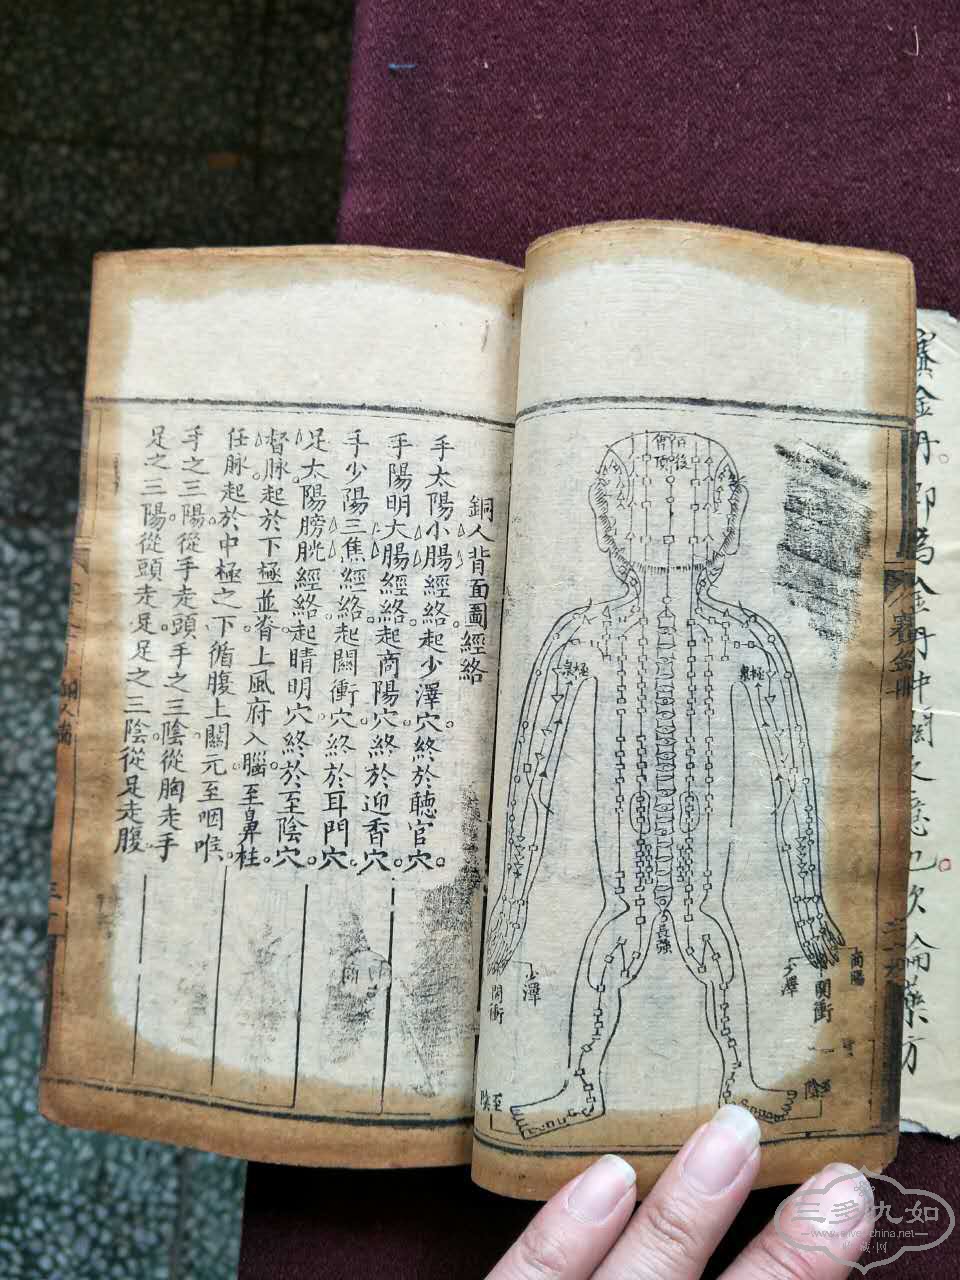 銅人背面圖經絡
手太陽小腸經絡起少澤穴終於聽官穴
手陽明大腸經絡起商陽穴終於迎香穴
手少陽三焦經絡起關衝穴終於耳門穴
足太陽膀胱經絡起睛明穴終於至陰穴
督脉起於下極並脊上風府入腦至鼻柱
任脉起於中極之下循腹上關元至咽喉
手之三陽從手走頭手之三陰從胸走手
足之三陽從頭走足足之三陰從足走腹
極泉
極泉
長強
少澤
關衝
少澤
關衝
商陽
至陰
至陰
銅人圖
賽金丹即為金丹中
論藥方
三多九如
收藏·网